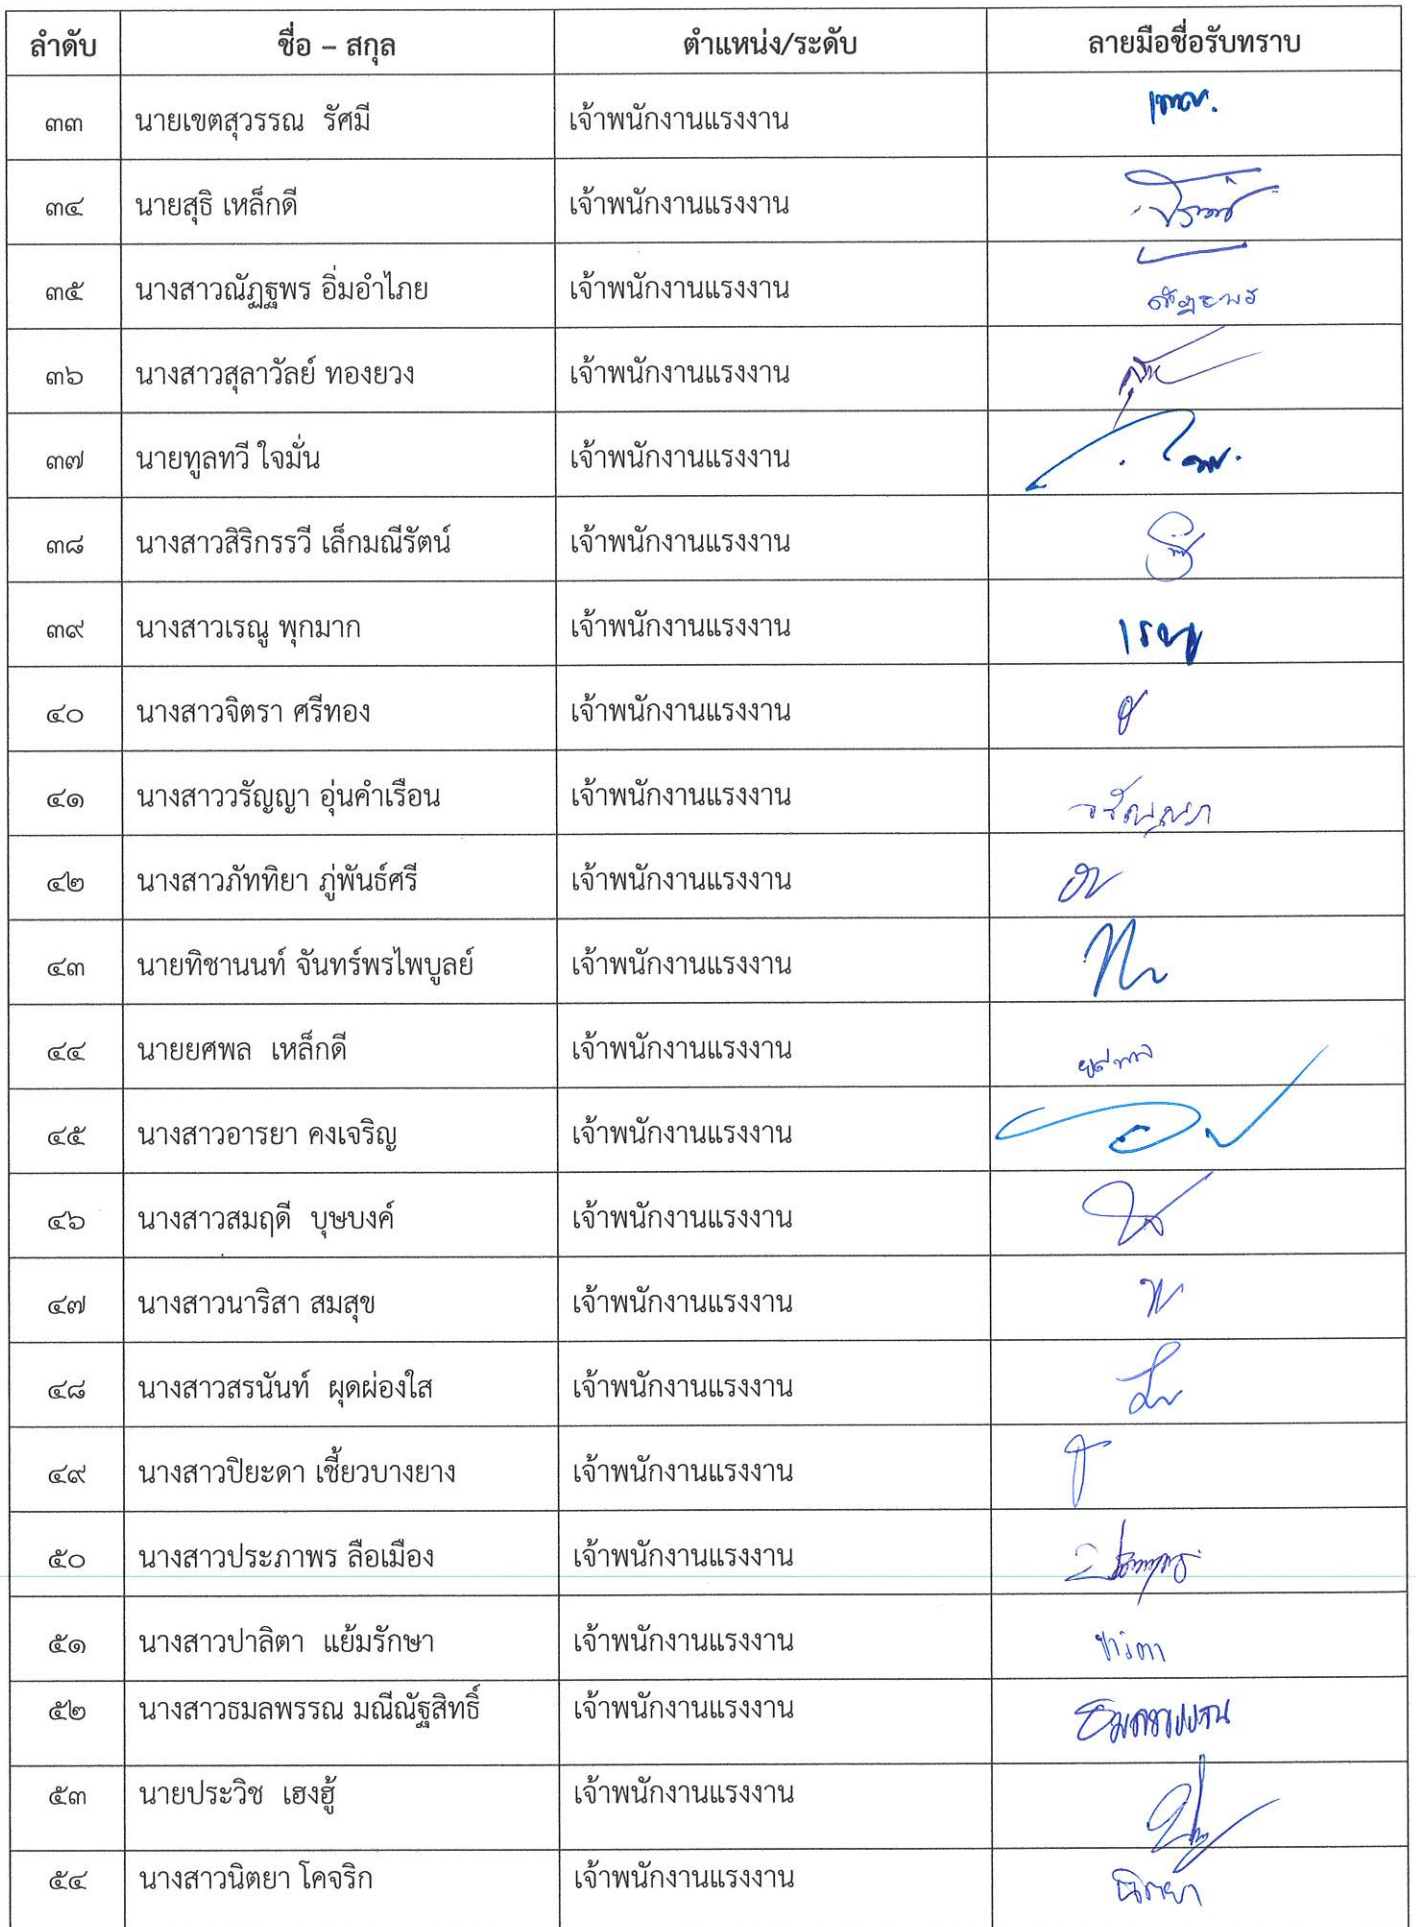 ลำดับ ชื่อ – สกุล ตำแหน่ง/ระดับ ลายมือชื่อรับทราบ
๓๓ นายเขตสุวรรณ รัศมี เจ้าพนักงานแรงงาน
๓๔ นายสุธิ เหล็กดี เจ้าพนักงานแรงงาน
๓๕ นางสาวณัฏฐพร อิ่มอำไภย เจ้าพนักงานแรงงาน
๓๖ นางสาวสุลาวัลย์ ทองยวง เจ้าพนักงานแรงงาน
๓๗ นายทูลทวี ใจมั่น เจ้าพนักงานแรงงาน
๓๘ นางสาวสิริกรรวี เล็กมณีรัตน์ เจ้าพนักงานแรงงาน
๓๙ นางสาวเรณู พุกมาก เจ้าพนักงานแรงงาน เรณู
๔๐ นางสาวจิตรา ศรีทอง เจ้าพนักงานแรงงาน
๔๑ นางสาววรัญญา อุ่นคำเรือน เจ้าพนักงานแรงงาน วรัญญา
๔๒ นางสาวภัททิยา ภู่พันธ์ศรี เจ้าพนักงานแรงงาน
๔๓ นายทิชานนท์ จันทร์พรไพบูลย์ เจ้าพนักงานแรงงาน
๔๔ นายยศพล เหล็กดี เจ้าพนักงานแรงงาน ยศพล
๔๕ นางสาวอารยา คงเจริญ เจ้าพนักงานแรงงาน
๔๖ นางสาวสมฤดี บุษบงค์ เจ้าพนักงานแรงงาน
๔๗ นางสาวนาริสา สมสุข เจ้าพนักงานแรงงาน
๔๘ นางสาวสรนันท์ ผุดผ่องใส เจ้าพนักงานแรงงาน
๔๙ นางสาวปิยะดา เชี้ยวบางยาง เจ้าพนักงานแรงงาน
๕๐ นางสาวประภาพร ลือเมือง เจ้าพนักงานแรงงาน
๕๑ นางสาวปาลิตา แย้มรักษา เจ้าพนักงานแรงงาน ปาลิตา
๕๒ นางสาวธมลพรรณ มณีณัฐสิทธิ์ เจ้าพนักงานแรงงาน
๕๓ นายประวิช เฮงฮู้ เจ้าพนักงานแรงงาน
๕๔ นางสาวนิตยา โคจริก เจ้าพนักงานแรงงาน นิตยา